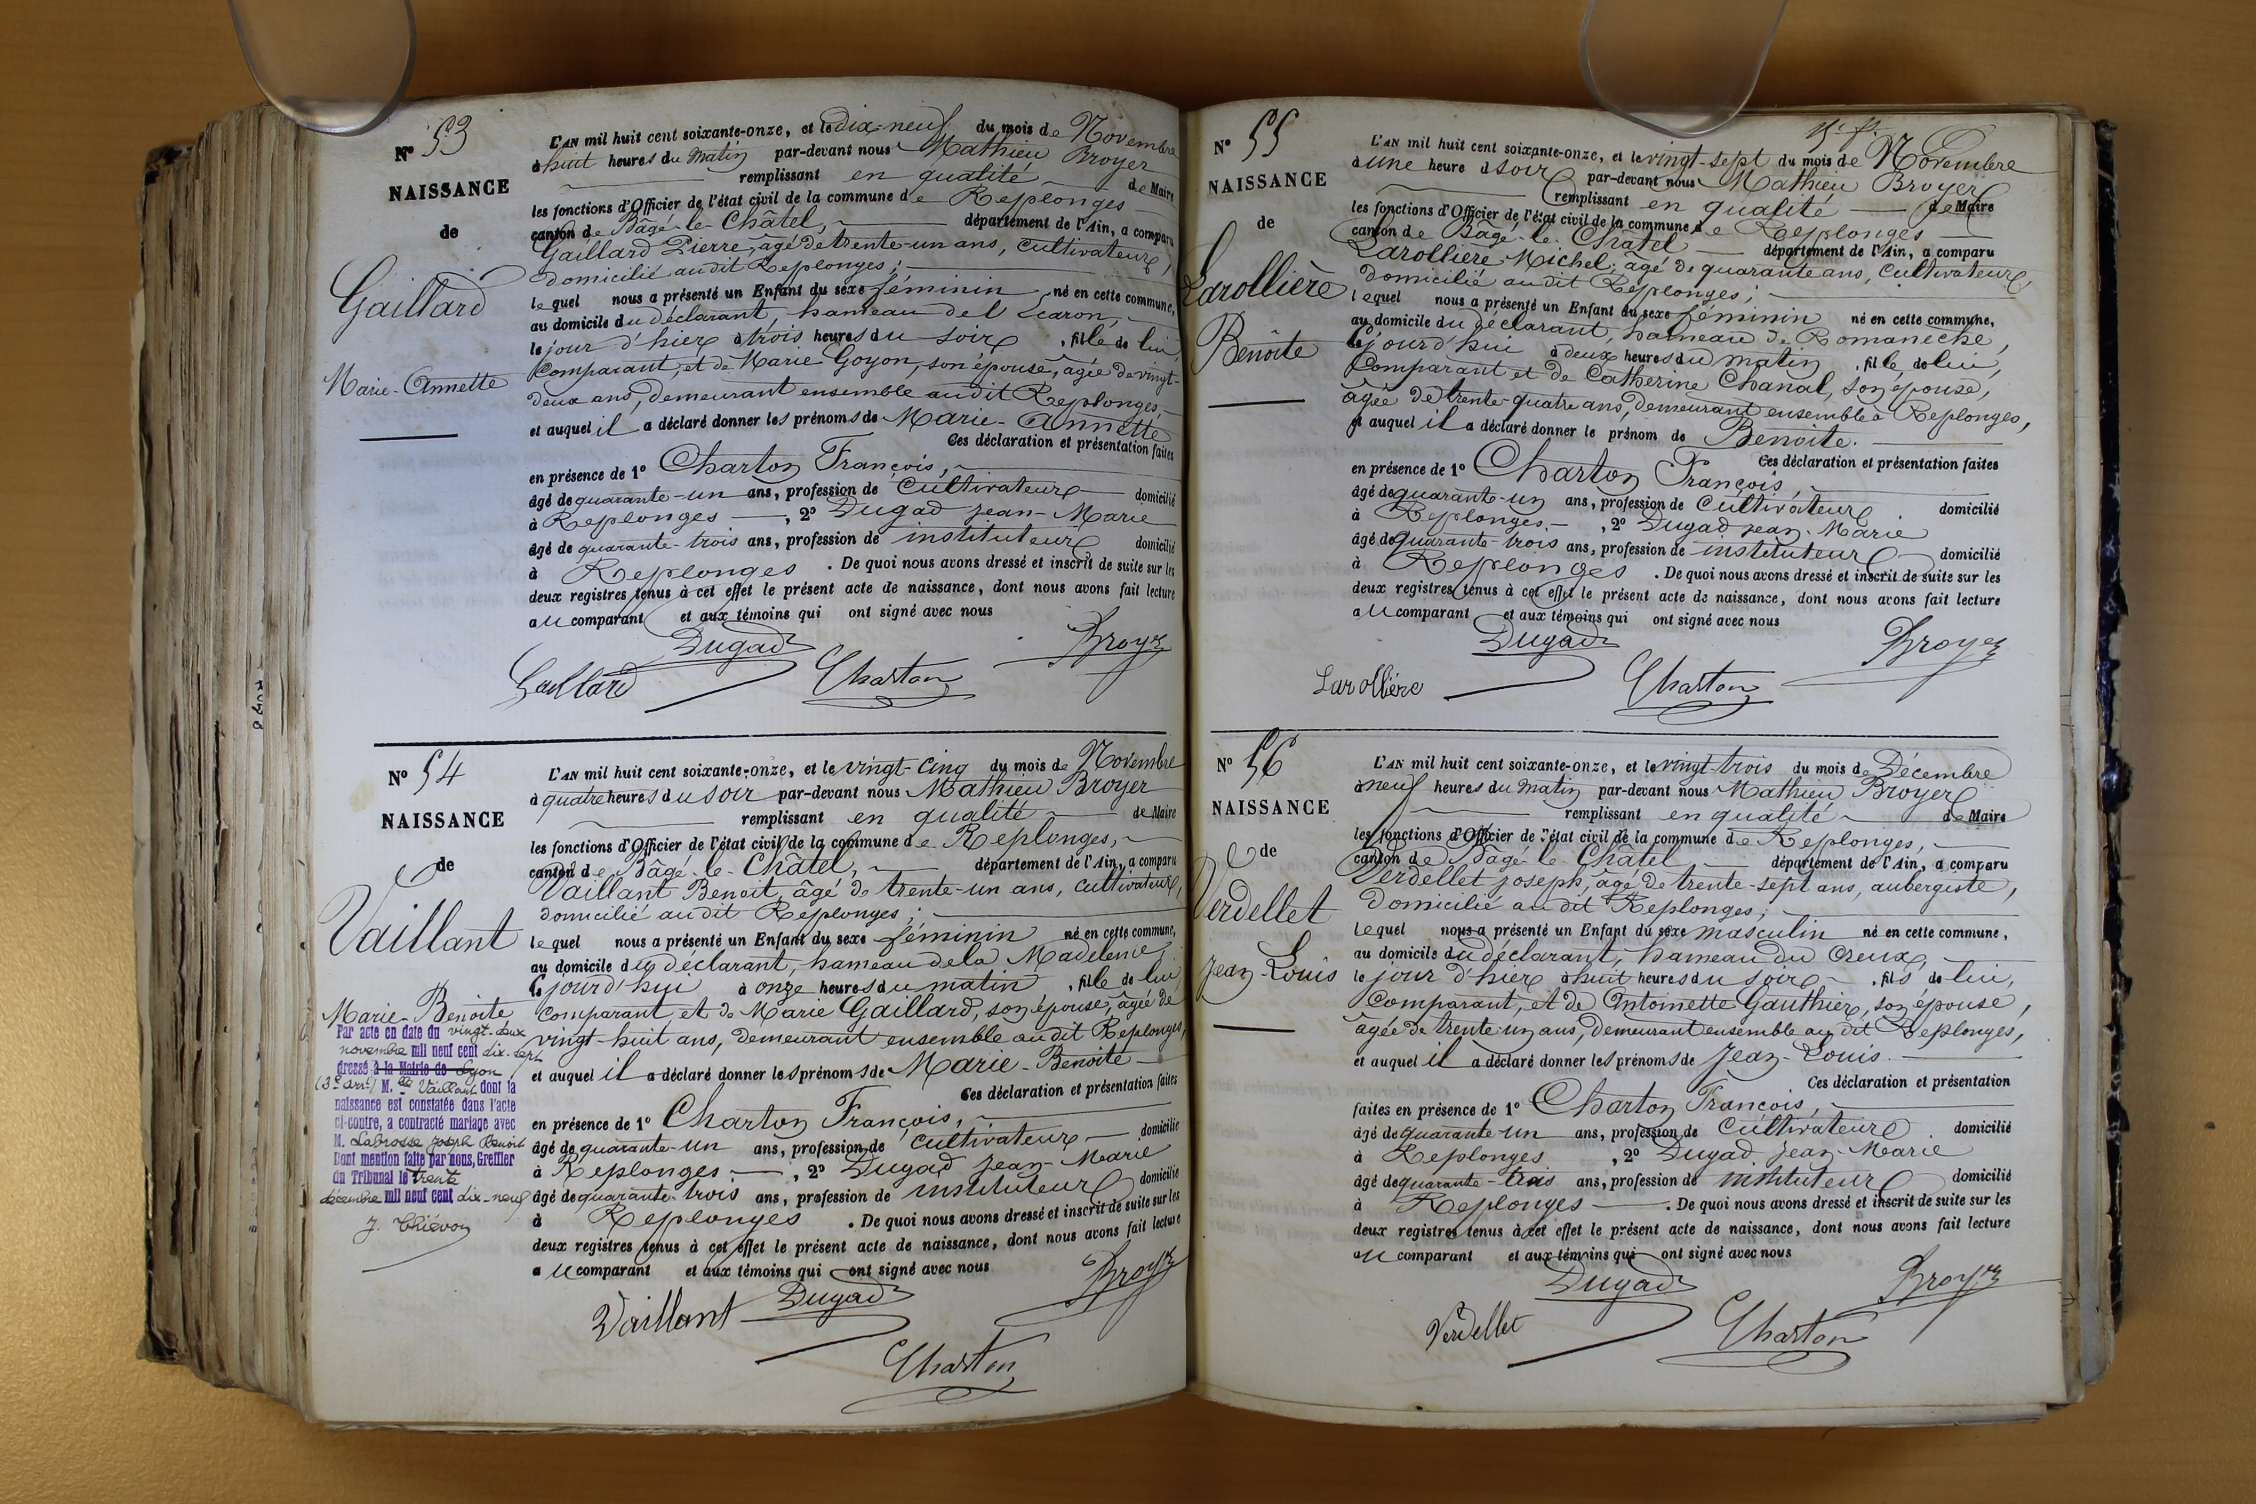 N° 53
NAISSANCE
de
Gaillard
Marie-Annette
L'AN mil huit cent soixante-onze, et le dix-neuf du mois de Novembre
à huit heures du matin par-devant nous Mathieu Broyer
remplissant en qualité de Maire
les fonctions d'Officier de l'état civil de la commune de Replonges
canton de Bâgé-le-Châtel, département de l'Ain, a comparu
Gaillard Pierre, âgé de trente-un ans, cultivateur,
domicilié au dit Replonges;
lequel nous a présenté un Enfant du sexe féminin né en cette commune,
au domicile du déclarant, hameau de
le jour d'hier à trois heures du soir, fille de lui,
Comparant, et de Marie Goyon, son épouse, âgée de vingt-
deux ans, demeurant ensemble au dit Replonges,
et auquel il a déclaré donner les prénoms de Marie-Annette
Ces déclaration et présentation faites
en présence de 1° Charton François,
âgé de quarante-un ans, profession de cultivateur domicilié
à Replonges, 2° Dugad Jean-Marie
âgé de quarante-trois ans, profession de instituteur domicilié
à Replonges. De quoi nous avons dressé et inscrit de suite sur les
deux registres tenus à cet effet le présent acte de naissance, dont nous avons fait lecture
au comparant et aux témoins qui ont signé avec nous
Dugad Broyer
Gaillard Charton
N° 54
NAISSANCE
de
Vaillant
Marie-Benoite
Par acte en date du vingt-deux
novembre mil neuf cent dix-sept
dressé à la Mairie de Lyon
(3e arrt) M.lle Vaillant dont la
naissance est constatée dans l'acte
ci-contre, a contracté mariage avec
M. Labrosse Joseph Benoit
Dont mention faite par nous, Greffier
du Tribunal le trente
décembre mil neuf cent dix-neuf
L'AN mil huit cent soixante-onze, et le vingt-cinq du mois de Novembre
à quatre heures du soir par-devant nous Mathieu Broyer
remplissant en qualité de Maire
les fonctions d'Officier de l'état civil de la commune de Replonges,
canton de Bâgé-le-Châtel, département de l'Ain, a comparu
Vaillant Benoit, âgé de trente-un ans, cultivateur,
domicilié au dit Replonges;
lequel nous a présenté un Enfant du sexe féminin né en cette commune,
au domicile du déclarant, hameau de la Madelene,
le jourd'hui à onze heures du matin, fille de lui,
comparant, et de Marie Gaillard, son épouse, âgée de
vingt-huit ans, demeurant ensemble au dit Replonges,
et auquel il a déclaré donner les prénoms de Marie-Benoite
Ces déclaration et présentation faites
en présence de 1° Charton François,
âgé de quarante-un ans, profession de cultivateur domicilié
à Replonges, 2° Dugad Jean-Marie
âgé de quarante-trois ans, profession de instituteur domicilié
à Replonges. De quoi nous avons dressé et inscrit de suite sur les
deux registres tenus à cet effet le présent acte de naissance, dont nous avons fait lecture
au comparant et aux témoins qui ont signé avec nous
Vaillant Dugad Broyer
Charton
N° 55
NAISSANCE
de
Larollière
Benoite
L'AN mil huit cent soixante-onze, et le vingt-sept du mois de Novembre
à une heure du soir par-devant nous Mathieu Broyer
remplissant en qualité de Maire
les fonctions d'Officier de l'état civil de la commune de Replonges
canton de Bâgé-le-Châtel département de l'Ain, a comparu
Larollière Michel, âgé de quarante ans, cultivateur,
domicilié au dit Replonges;
lequel nous a présenté un Enfant du sexe féminin né en cette commune,
au domicile du déclarant, hameau de Romaneche,
le jourd'hui à deux heures du matin, fille de lui,
Comparant et de Catherine Chanal, son épouse,
âgée de trente-quatre ans, demeurant ensemble à Replonges,
et auquel il a déclaré donner le prénom de Benoite.
Ces déclaration et présentation faites
en présence de 1° Charton François,
âgé de quarante-un ans, profession de cultivateur domicilié
à Replonges, 2° Dugad Jean-Marie
âgé de quarante-trois ans, profession de instituteur domicilié
à Replonges. De quoi nous avons dressé et inscrit de suite sur les
deux registres tenus à cet effet le présent acte de naissance, dont nous avons fait lecture
au comparant et aux témoins qui ont signé avec nous
Dugad Broyer
Larollière Charton
N° 56
NAISSANCE
de
Verdellet
Jean-Louis
L'AN mil huit cent soixante-onze, et le vingt-trois du mois de Décembre
à neuf heures du matin par-devant nous Mathieu Broyer
remplissant en qualité de Maire
les fonctions d'Officier de l'état civil de la commune de Replonges,
canton de Bâgé-le-Châtel département de l'Ain, a comparu
Verdellet Joseph, âgé de trente-sept ans, aubergiste,
domicilié au dit Replonges;
lequel nous a présenté un Enfant du sexe masculin né en cette commune,
au domicile du déclarant, hameau du Creux,
le jour d'hier à huit heures du soir, fils de lui,
Comparant, et de Antoinette Gauthier, son épouse,
âgée de trente-un ans, demeurant ensemble au dit Replonges,
et auquel il a déclaré donner les prénoms de Jean-Louis.
Ces déclaration et présentation
faites en présence de 1° Charton François,
âgé de quarante-un ans, profession de cultivateur domicilié
à Replonges, 2° Dugad Jean-Marie
âgé de quarante-trois ans, profession de instituteur domicilié
à Replonges. De quoi nous avons dressé et inscrit de suite sur les
deux registres tenus à cet effet le présent acte de naissance, dont nous avons fait lecture
au comparant et aux témoins qui ont signé avec nous
Dugad Broyer
Verdellet Charton